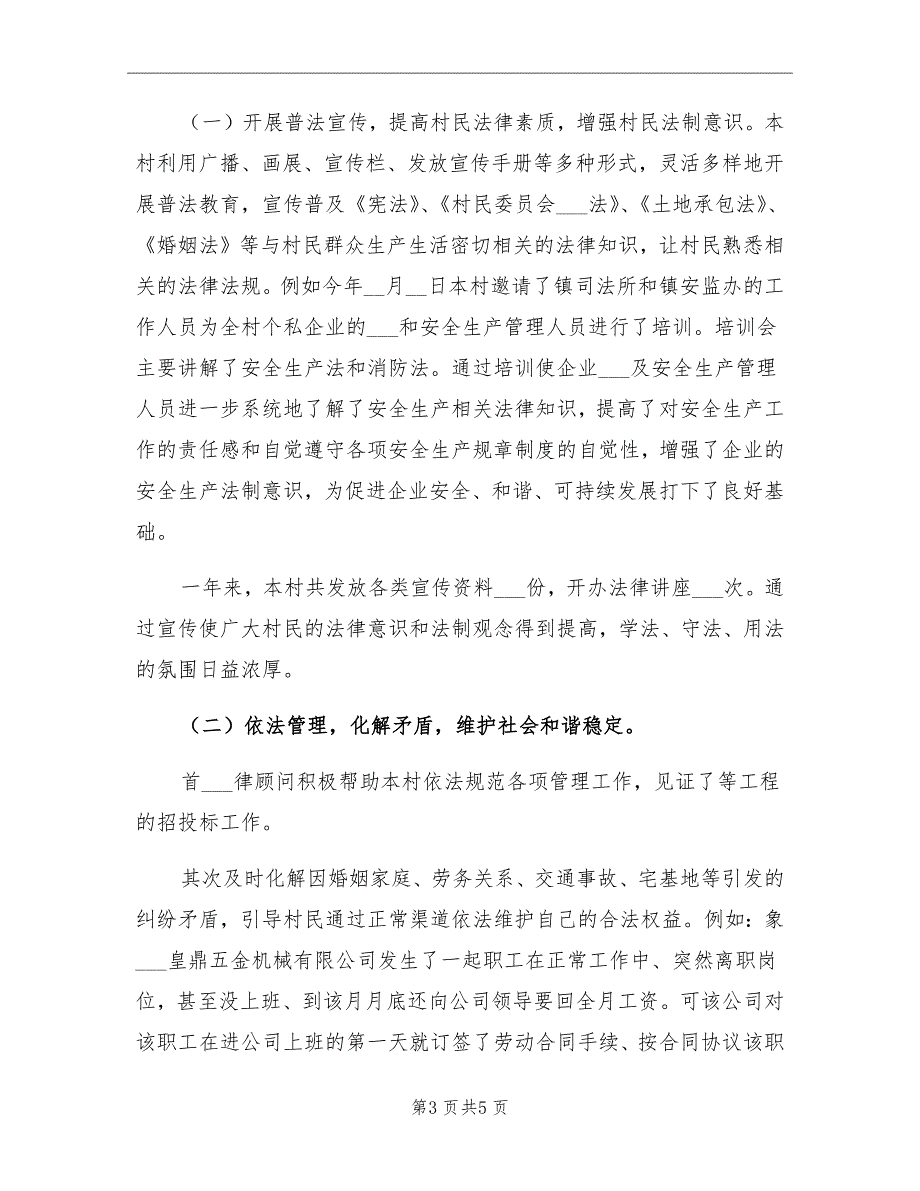 （一）开展普法宣传，提高村民法律素质，增强村民法制意识。本
村利用广播、画展、宣传栏、发放宣传手册等多种形式，灵活多样地开
展普法教育，宣传普及《宪法》、《村民委员会___法》、《土地承包法》、
《婚姻法》等与村民群众生产生活密切相关的法律知识，让村民熟悉相
关的法律法规。例如今年__月__日本村邀请了镇司法所和镇安监办的工
作人员为全村个私企业的___和安全生产管理人员进行了培训。培训会
主要讲解了安全生产法和消防法。通过培训使企业___及安全生产管理
人员进一步系统地了解了安全生产相关法律知识，提高了对安全生产工
作的责任感和自觉遵守各项安全生产规章制度的自觉性，增强了企业的
安全生产法制意识，为促进企业安全、和谐、可持续发展打下了良好基
础。
一年来，本村共发放各类宣传资料___份，开办法律讲座___次。通
过宣传使广大村民的法律意识和法制观念得到提高，学法、守法、用法
的氛围日益浓厚。
（二）依法管理，化解矛盾，维护社会和谐稳定。
首___律顾问积极帮助本村依法规范各项管理工作，见证了等工程
的招投标工作。
其次及时化解因婚姻家庭、劳务关系、交通事故、宅基地等引发的
纠纷矛盾，引导村民通过正常渠道依法维护自己的合法权益。例如：象
___皇鼎五金机械有限公司发生了一起职工在正常工作中、突然离职岗
位，甚至没上班、到该月月底还向公司领导要回全月工资。可该公司对
该职工在进公司上班的第一天就订签了劳动合同手续、按合同协议该职
第3 页共5 页